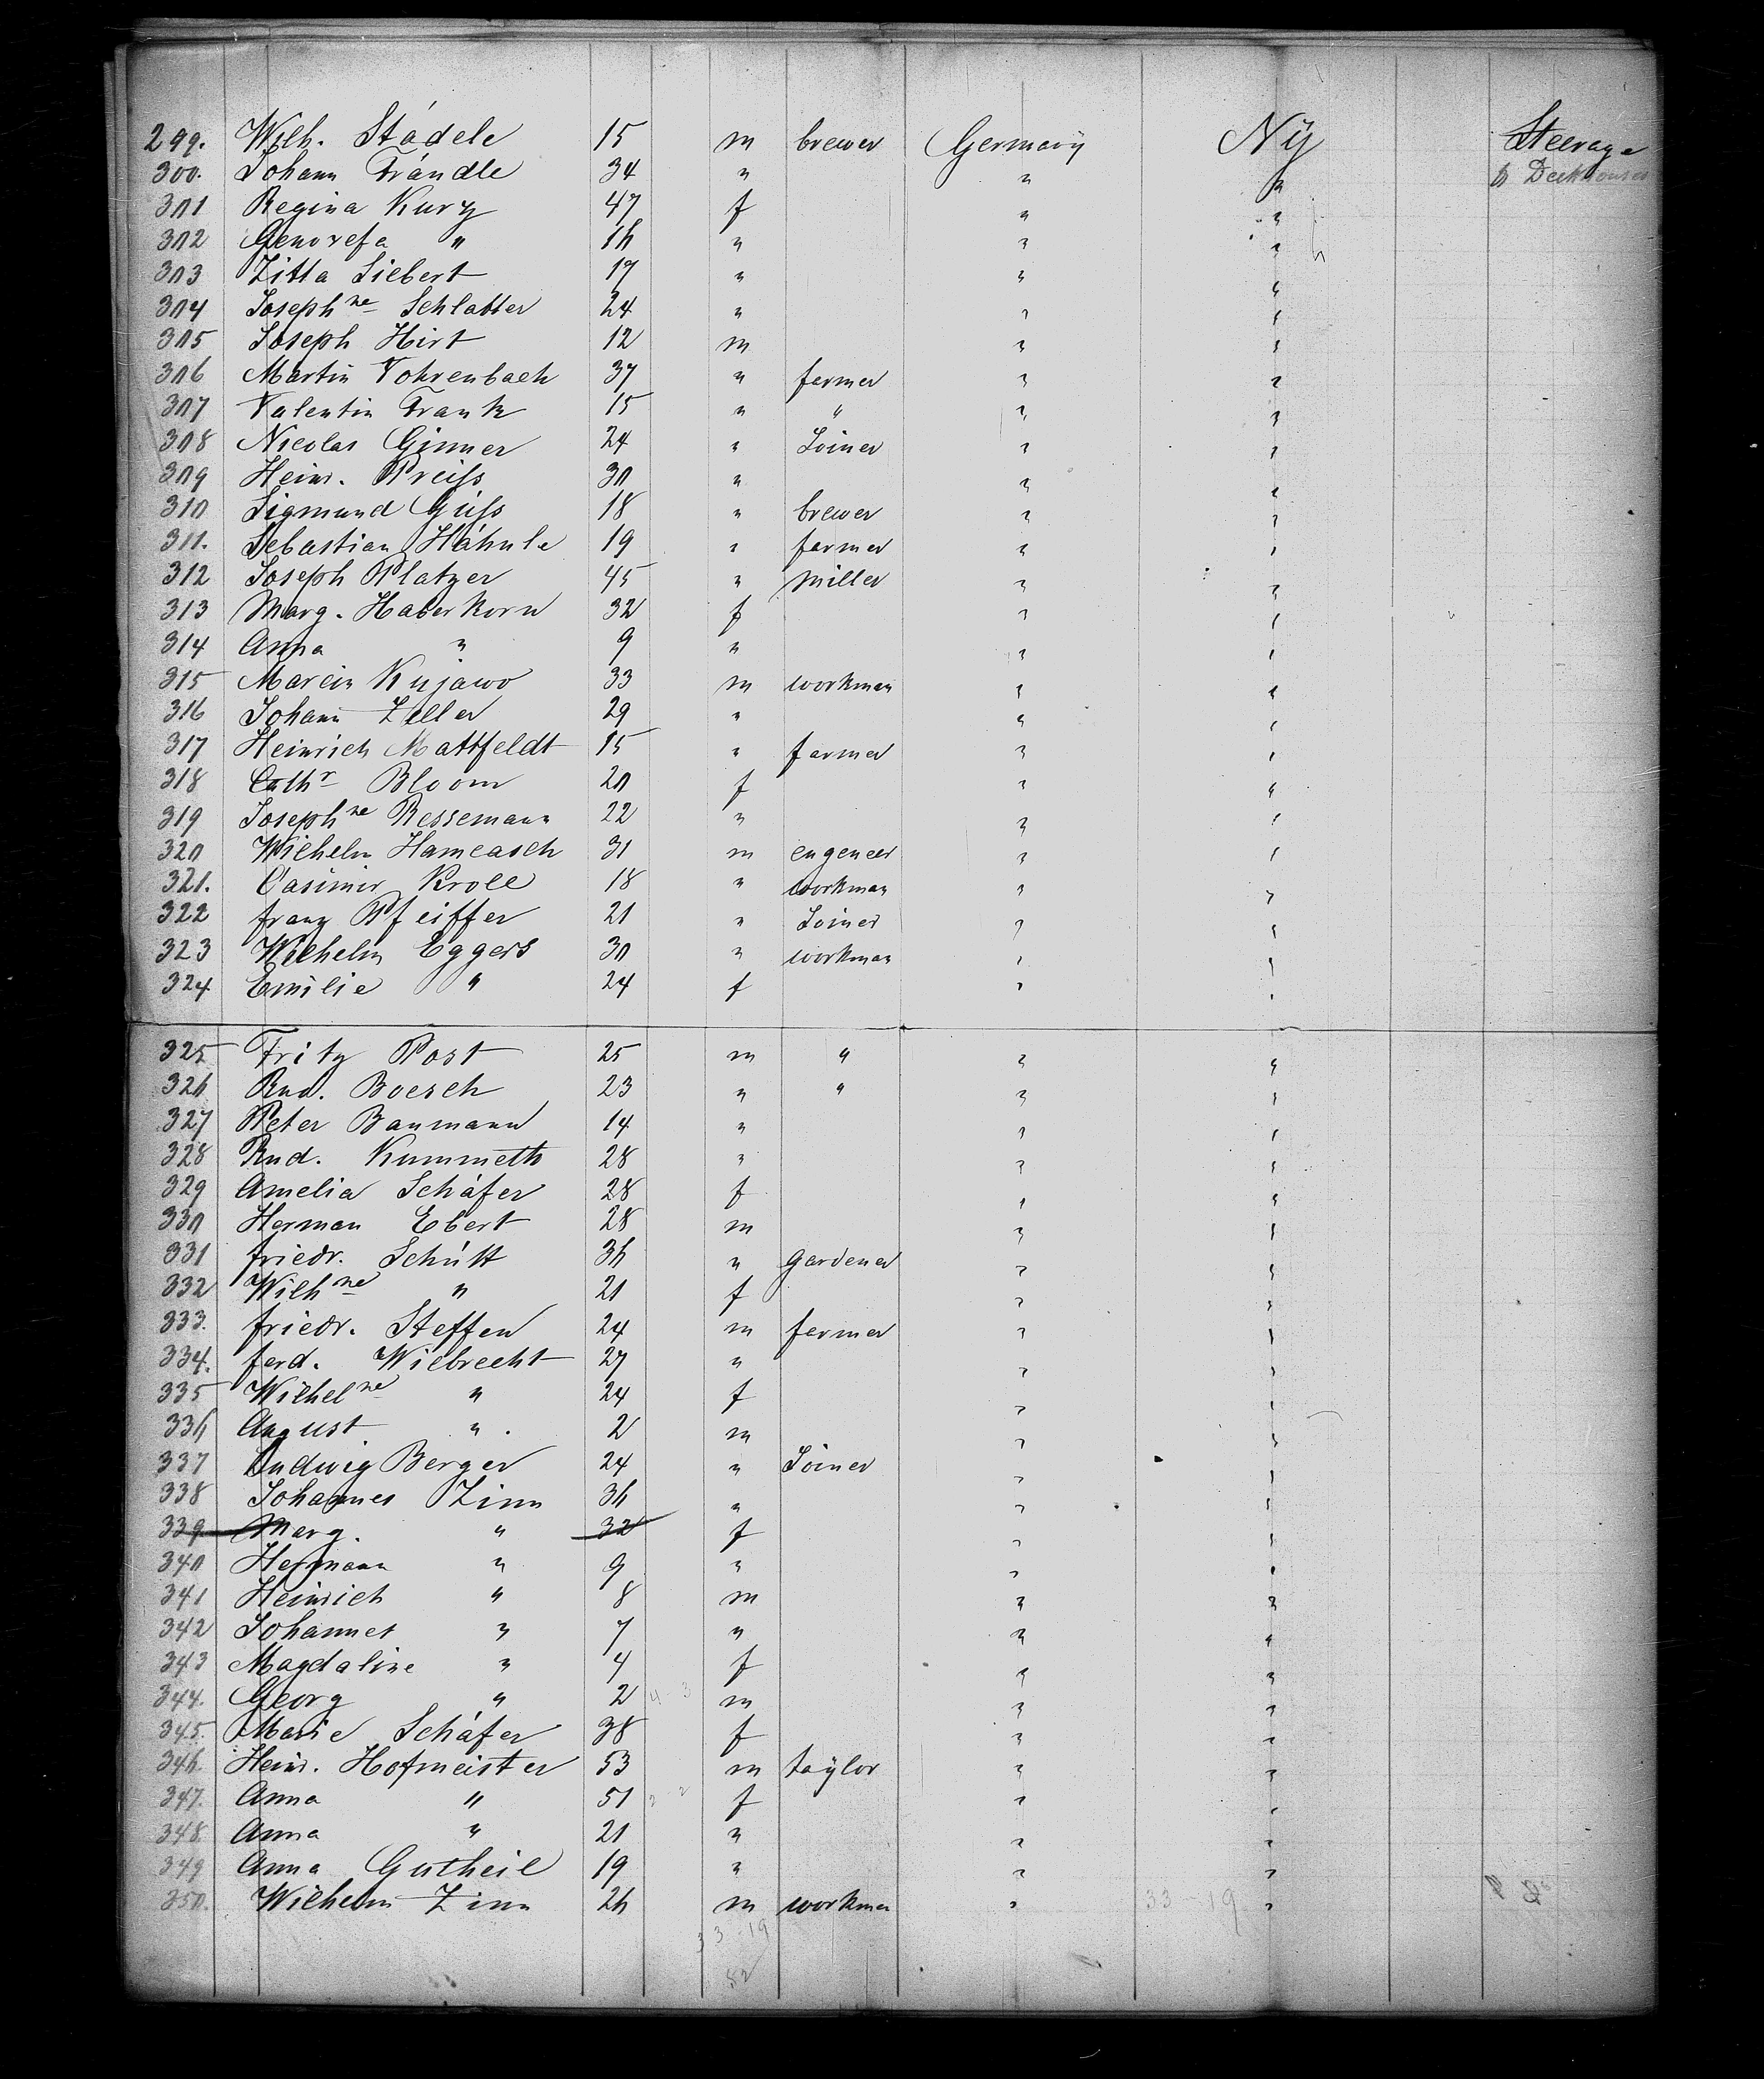 299. Wilh. Städele 15 m brewer Germany NY Steerage
300. Johann Trändle 34 " " " Deckhouse
301 Regina Kurz 47 f " "
302 Genovefa " 16 " " "
303 Zitta Siebert 17 " " "
304 Josephne Schlatter 24 " " "
305 Joseph Hirt 12 m " "
306 Martin Vohrenbach 37 " farmer " "
307 Valentin Frank 15 " " " "
308 Nicolas Ginner 24 " Joiner " "
309 Heinr. Preiss 30 " " "
310 Sigmund Güss 18 " brewer " "
311. Sebastian Hähnle 19 " farmer " "
312 Joseph Platzer 45 " miller " "
313 Marg. Haberkorn 32 f " "
314 Anna " 9 " " "
315 Marcin Kujawo 33 m workman " "
316 Johann Zeller 29 " " "
317 Heinrich Mattfeldt 15 " farmer " "
318 Cathr Bloom 20 f " "
319 Josephne Ressemann 22 " " "
320 Wilhelm Hameasch 31 m engeneer " "
321. Casimir Kroll 18 " workman " "
322 Franz Pfeiffer 21 " Joiner " "
323 Wilhelm Eggers 30 " workman " "
324 Emilie " 24 f " "
325 Fritz Post 25 m " " "
326 Rud. Boesch 23 " " " "
327 Peter Baumann 14 " " "
328 Rud. Kummeth 28 " " "
329 Amelia Schäfer 28 f " "
330 Herman Ebert 28 m " "
331 Friedr. Schütt 36 " gardener " "
332 Wilhne " 21 f " "
333. Friedr. Steffen 24 m farmer " "
334. Ferd. Wiebrecht 27 " " "
335 Wilhelne " 24 f " "
336 August " 2 m " "
337 Ludwig Berger 24 " Joiner " "
338 Johannes Zinn 36 " " "
339 Marg. " 32 f " "
340 Hermann " 9 " " "
341 Heinrich " 8 m " "
342 Johannes " 7 " " "
343 Magdaline " 4 f " "
344. Georg " 2 m " "
345. Marie Schäfer 38 f " "
346. Heinr. Hofmeister 53 m taylor " "
347. Anna " 51 f " "
348. Anna " 21 " " "
349 Anna Gutheil 19 " " "
350. Wilhelm Zinn 26 m workman " 33-19 "
33-19
52